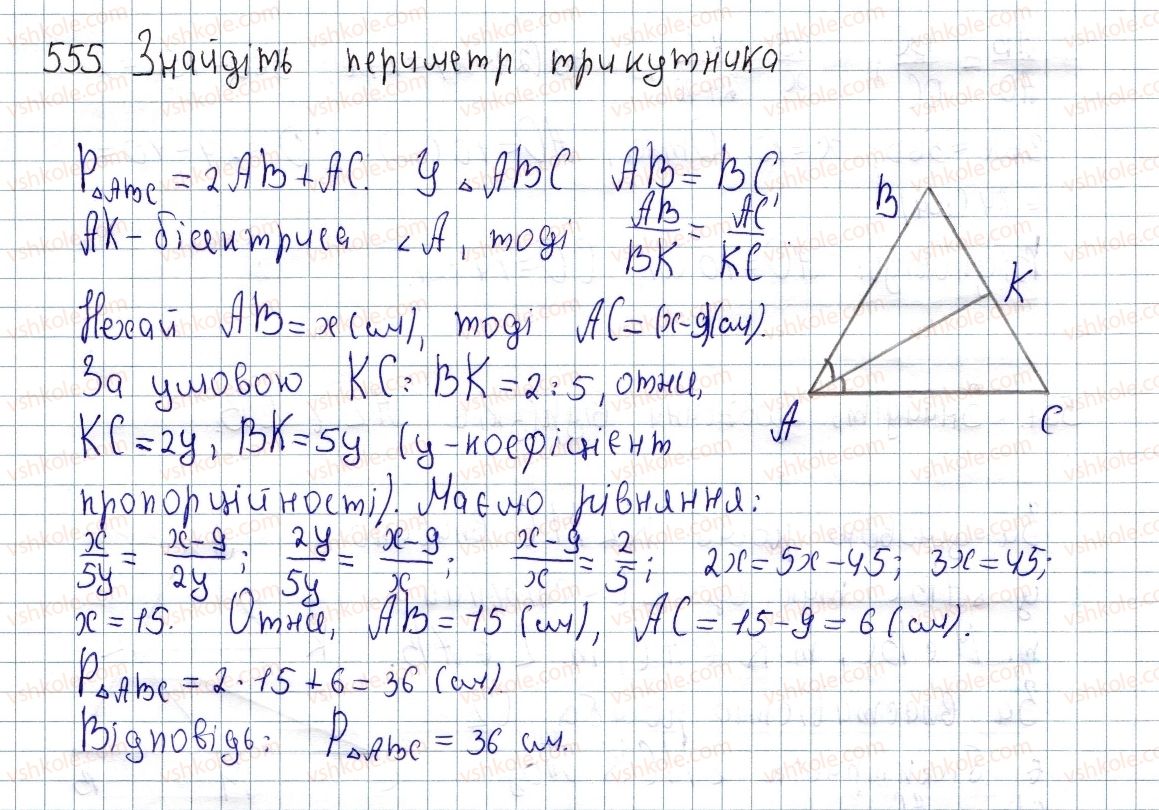 555. Знайдіть периметр трикутника
P△ABC = 2AB + AC. У △ABC AB = BC,
AK - бісектриса ∠A, тоді AB/BK = AC/KC.
Нехай AB = x (см), тоді AC = (x-9)(см).
За умовою KC : BK = 2 : 5, отже,
KC = 2y, BK = 5y (y - коефіцієнт
пропорційності). Маємо рівняння:
x/5y = x-9/2y; 2y/5y = x-9/x; x-9/x = 2/5; 2x = 5x - 45; 3x = 45;
x = 15. Отже, AB = 15 (см), AC = 15 - 9 = 6 (см).
P△ABC = 2 · 15 + 6 = 36 (см).
Відповідь: P△ABC = 36 см.
B
K
A
C